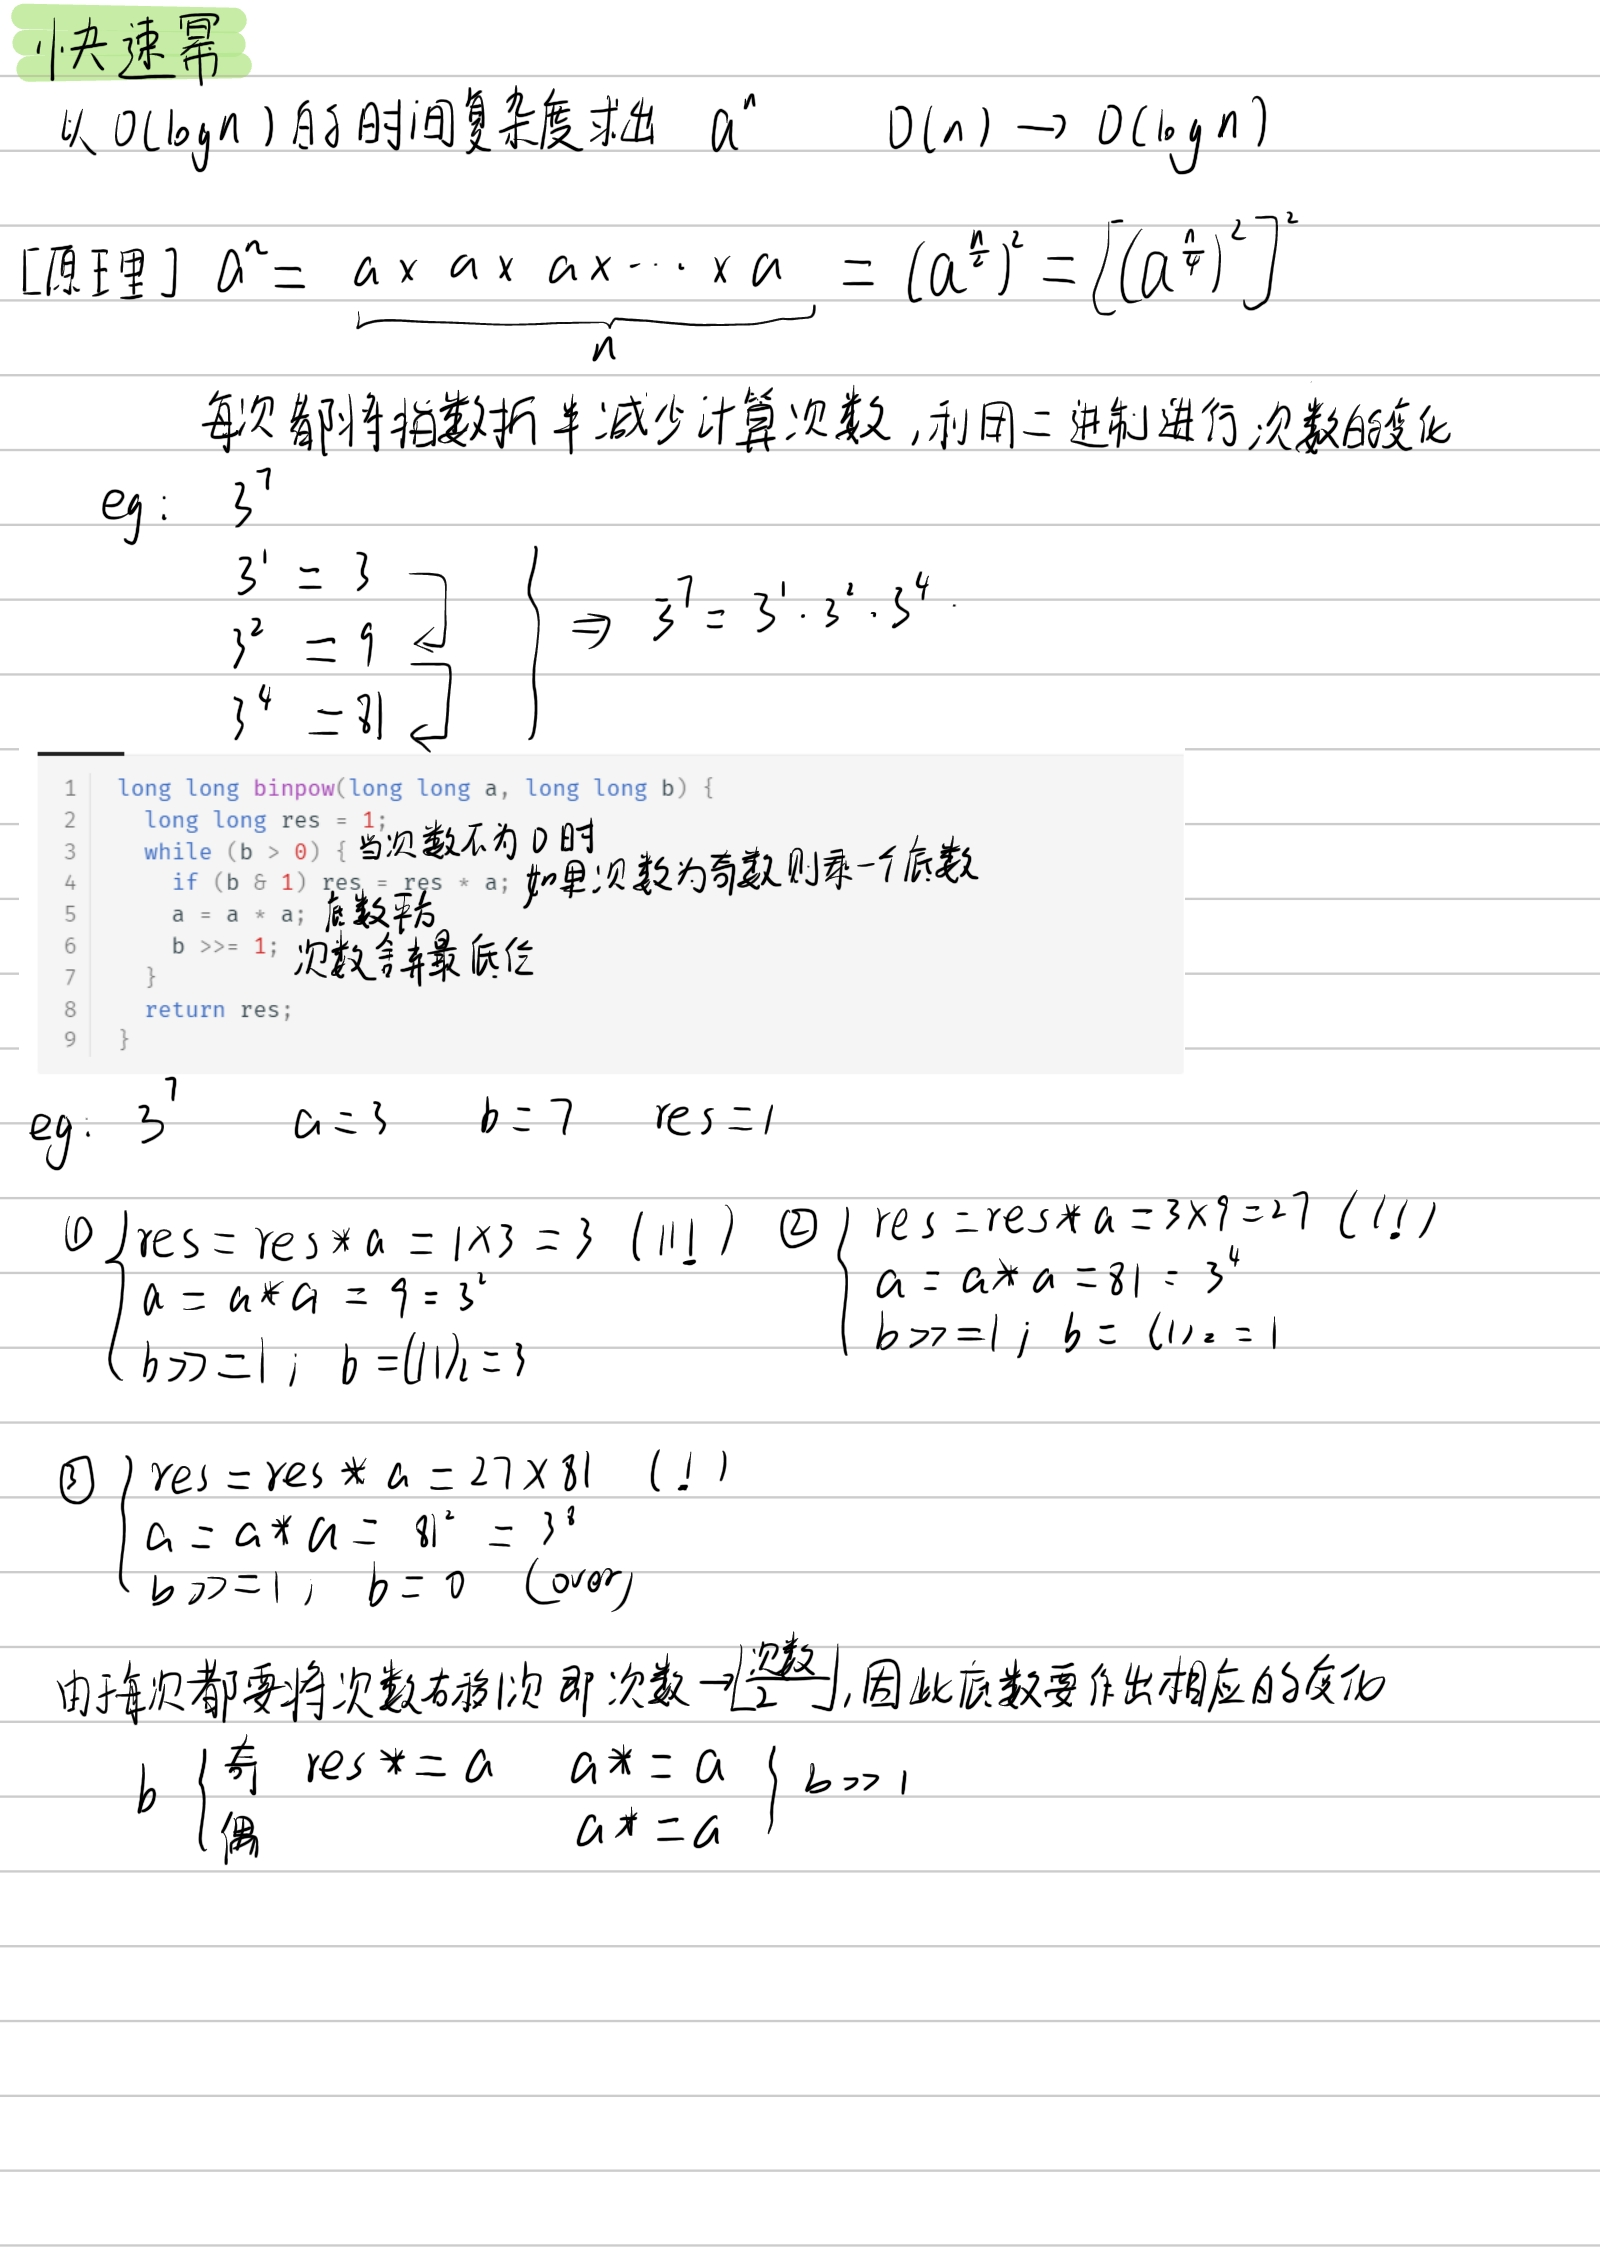 快速幂
以 O(logn) 的时间复杂度求出 aⁿ O(n) → O(logn)
[原理] aⁿ = a × a × a × ··· × a = (a^(n/2))² = [(a^(n/4))²]²
n
每次都将指数折半减少计算次数,利用二进制进行次数的变化
eg: 3⁷
3¹ = 3
3² = 9
3⁴ = 81
⇒ 3⁷ = 3¹·3²·3⁴.
1 long long binpow(long long a, long long b) {
2 long long res = 1;
3 while (b > 0) { 当次数不为0时
4 if (b & 1) res = res * a; 如果次数为奇数则乘一个底数
5 a = a * a; 底数平方
6 b >>= 1; 次数舍弃最低位
7 }
8 return res;
9 }
eg: 3⁷ a=3 b=7 res=1
① res = res * a = 1×3 = 3 (111)
a = a*a = 9 = 3²
b>>=1; b=(11)₂=3
② res = res * a = 3×9 = 27 (11)
a = a*a = 81 = 3⁴
b>>=1; b=(1)₂=1
③ res = res * a = 27×81 (1)
a = a*a = 81² = 3⁸
b>>=1; b=0 (over)
由于每次都要将次数右移1次 即 次数→⌊次数/2⌋,因此底数要作出相应的变化
b { 奇 res*=a a*=a } b>>1
偶 a*=a